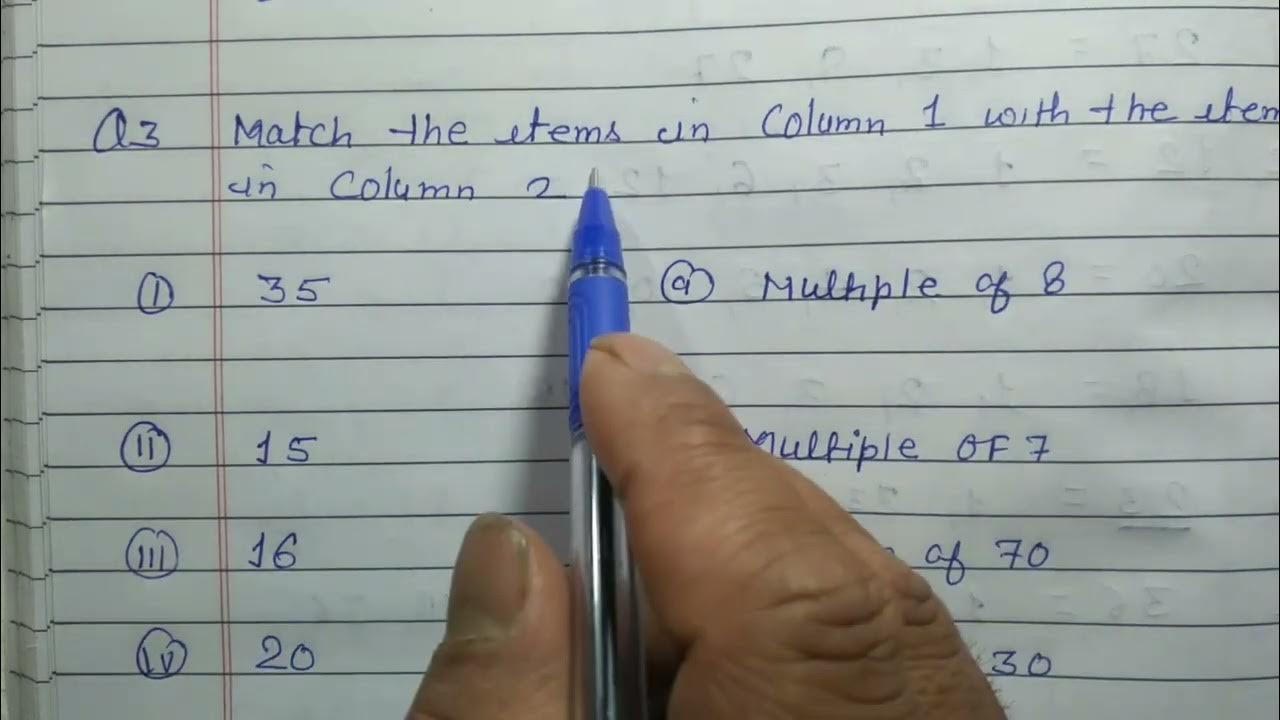 Q3 Match the items in Column 1 with the item
in Column 2
(I) 35 (a) Multiple of 8
(II) 15 Multiple OF 7
(III) 16 of 70
(IV) 20 30